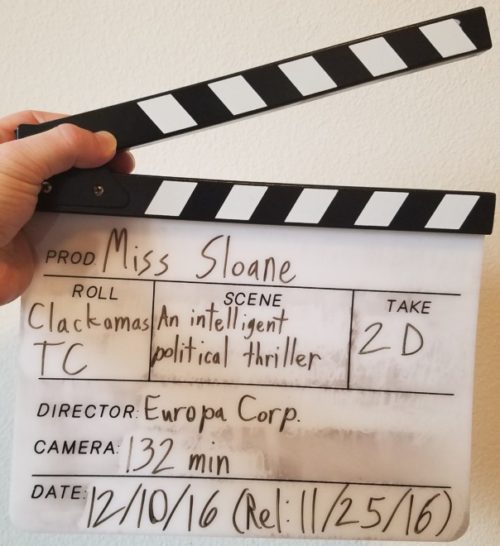 PROD. Miss Sloane
ROLL SCENE TAKE
Clackamas An intelligent 2D
TC political thriller
DIRECTOR: Europa Corp.
CAMERA: 132 min
DATE: 12/10/16 (Rel: 11/25/16)